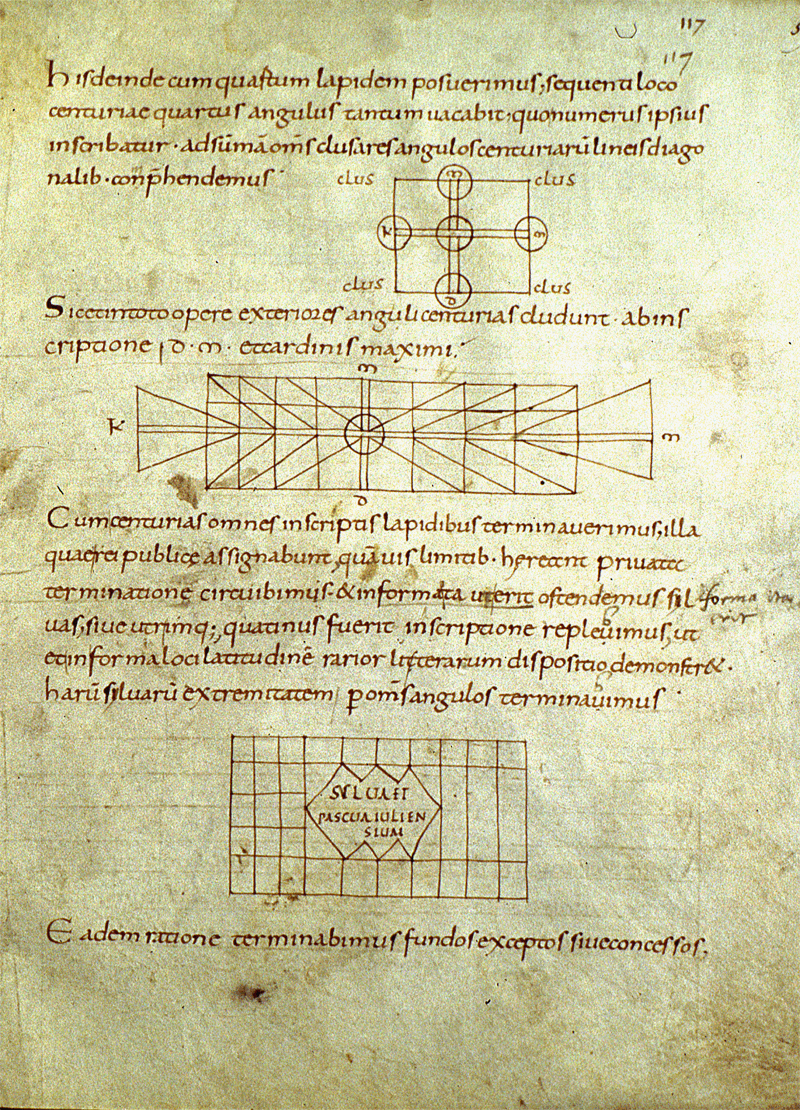 117
117
hisdeinde cum quartum lapidem posuerimus; sequenti loco
centuriae quartus angulus tantum uacabit· quo numerus ipsius
inscribatur· ad sūmā om̄s clusares angulos centuriarū lineis diago
nalib· conp̄hendemus
clus m clus
k m
clus d clus
Sicet intoto opere exteriores anguli centurias cludunt· ab ins
criptione d· m· et cardinis maximi.
m
k m
d
Cum centurias omnes inscriptis lapidibus terminauerimus, illa
quae rei publice assignabunt, quāuis limitib· hereant priuate
terminatione circuibimus· & in forma ita uterit ostendemus sil
forma
erit
uas, siue utrimq; quatinus fuerit inscriptione repleuimus, ut
et in forma loci latitudinē rarior litterarum dispositio demonstr&·
harū siluarū extremitatem p om̄s angulos terminauimus
SYLUA ET
PASCUA IULIEN
SIUM
Eadem ratione terminabimus fundos exceptos siue concessos.